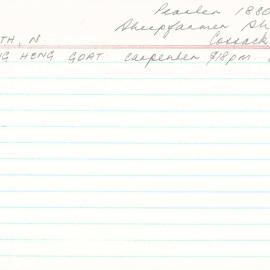 Pearler 188
Sheepfarmer Sh
TH, N Cossack
NG HENG GOAT carpenter 98pm